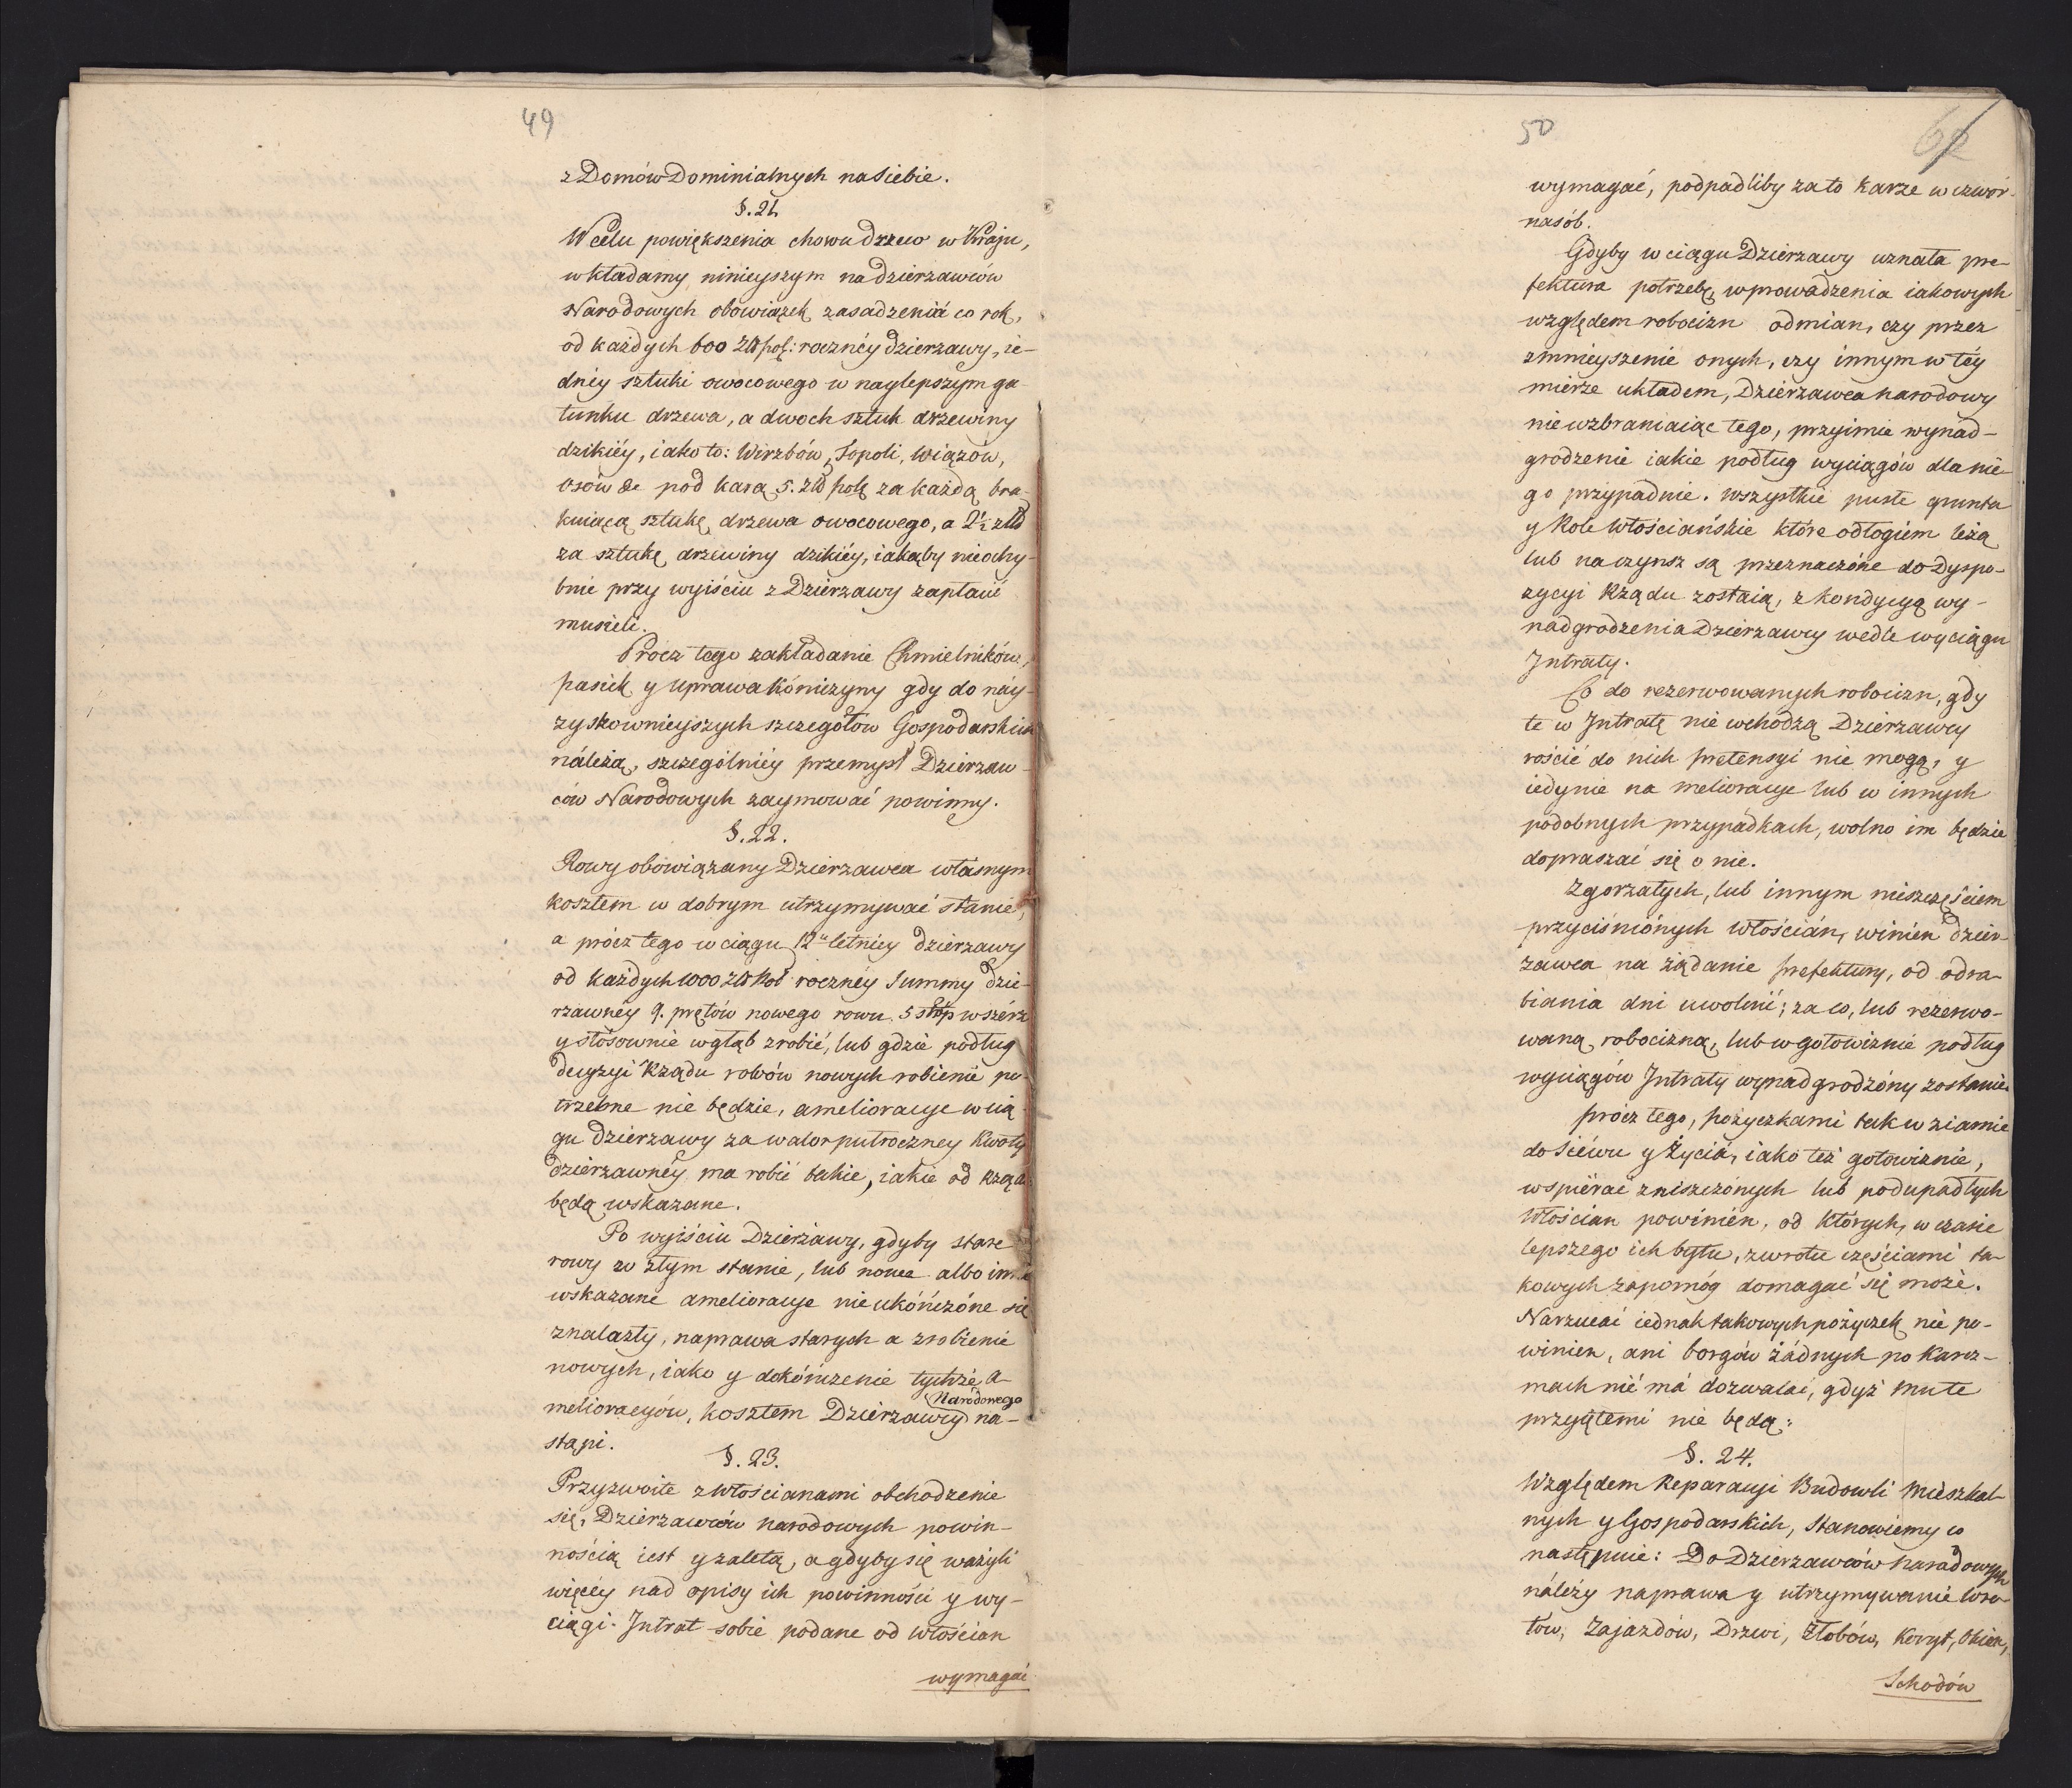 49
z Domów Dominialnych na siebie.
§. 21.
W celu powiększenia chowu drzew w Kraju,
wkładamy ninieyszym na dzierzawców
Narodowych obowiązek zasadzenia co rok,
od każdych 600 zł pol: rocznéy dzierzawy, ie-
dnéy sztuki owocowego w naylepszym ga-
tunku drzewa, a dwóch sztuk drzewiny
dzikiéy, iako to: Wirzbów, Topoli, Wiązów,
osów &c pod karą 5. złł polę za każdą bra-
kuiącą sztukę drzewa owocowego, a 2½ złł
za sztukę drzewiny dzikiéy, iakąby nieochy-
bnie przy wyiściu z Dzierzawy zapłacić
musieli.
Prócz tego zakładanie Chmielników,
pasiek y uprawa kóniczyny gdy do náy-
zyskownieyszych szczegółów Gospodarskich
náleżą, szczególniéy przemysł Dzierzaw-
ców Narodowych zaymować powinny.
§. 22.
Rowy obowiązany Dzierzawca własnym
kosztem w dobrym utrzymywać stanie,
a prócz tego w ciągu 12 letniéy dzierzawy
od każdych 1000 złł Pol rocznéy Summy dzie-
rzawnéy 9. prętów nowego rowu 5 stóp wszérz
y stósownie wgłąb zrobić, lub gdzie podług
decyzyi Rządu rowów nowych robienie po-
trzebne nie będzie, amelioracye w cią-
gu dzierzawy za walor półroczney Kwoty
dzierzawnéy ma robić takie, iakie od Rządu
będą wskazane.
Po wyiściu Dzierżawy, gdyby stare
rowy w złym stanie, lub nowe albo inne
wskazane amelioracye nieukóńczóne się
znalazły, naprawa starych a zrobienie
nowych, iako y dokóńczenie tychże a-
Narodowego
melioracyów, kosztem Dzierzawcy na-
stąpi.
§. 23.
Przyzwoite z włościanami obchodzenie
się, Dzierzawców narodowych powin-
nością iest y zaletą, a gdyby się ważyli
więcéy nad opisy ich powinności y wy-
ciągi Intrat sobie podane od włościan
wymagać
50
62
wymagać, podpadliby za to karze w czwór-
nasób.
Gdyby w ciągu Dzierzawy uznała pre-
fektura potrzebę, wprowadzenia iakowych
względem robocizn odmian, czy przez
zmnieyszenie onych, czy innym w téy
mierze układem, Dzierzawca narodowy
nie wzbraniaiąc tego, przyimie wynad-
grodzenie iakie podług wyciągów dla nie-
go przypadnie. wszystkie puste grunta
y Role włościańskie które odłogiem leżą
lub na czynsz są przeznaczóne do dyspo-
zycyi Rządu zostaią, z kondycyą wy-
nadgrodzenia Dzierzawcy wedle wyciągu
Intraty.
Co do rezerwowanych robocizn, gdy
te w Intratę nie wchodzą Dzierzawcy
rościć do nich pretensyi nie mogą, y
iedynie na melioracye lub w innych
podobnych przypadkach, wolno im będzie
dopraszać się o nie.
Zgorzałych, lub innym nieszczęściem
przyciśniónych włościán, winién dzier-
zawca na żądanie prefektury, od odra-
biania dni uwolnić; za co, lub rezerwo-
waną robocizną, lub w gotowiznie podług
wyciągów Intraty wynadgrodzóny zostanie.
prócz tego, pożyczkami tak w ziarnie
do siéwu y życiá, iako też gotowiznie,
wspiérać zniszczónych lub podupadłych
Włościan powinién, od których, w czasie
lepszego ich bytu, zwrotu częściami ta-
kowych zapomóg domagać się może.
Narzucać iednak takowych pożyczek nie po-
winien, ani borgów żádnych po Karcz-
mach nié má dozwalać, gdyż mu te
przyiętemi nie będą:
§. 24.
Względem Reparacyi Budowli Mieszkal-
nych y Gospodarskich, Stanowiemy co
następuie: Do Dzierzawców narodowych
náleży naprawa y utrzymywanie Wro-
tów, Zajazdów, Drzwi, Złobów, Koryt, Okien,
Schodów